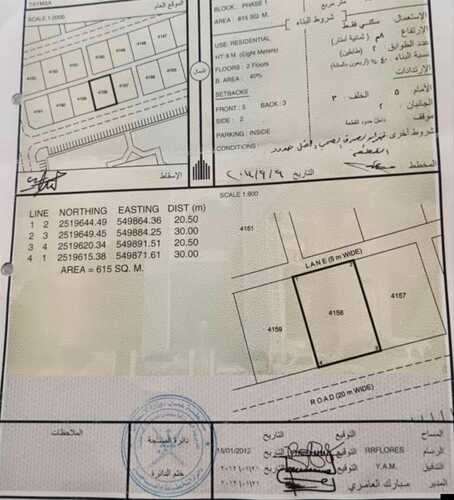 TAYMSA
الموقع العام
SCALE 1:2000
4147
4157
4158
4159
الشمال
الإسقاط
BLOCK : PHASE 1
AREA : 615 SQ. M.
متر مربع
شروط البناء
USE: RESIDENTIAL
HT 8 M. (Eight Meters)
FLOORS : 2 Floors
B. AREA : 40%
SETBACKS
FRONT : 5 BACK : 3
SIDE : 2
PARKING : INSIDE
CONDITIONS :
الاستعمال سكني فقط
الارتفاع ٨م (ثمانية أمتار)
عدد الطوابق ٢ (طابقين)
نسبة البناء ٤٠٪ (أربعون بالمائة)
الإرتدادات
الأمام ٥ الخلف ٣
الجانبان ٢
موقف داخل حدود القطعة
شروط أخرى
المخطط
التاريخ
SCALE 1:600
LINE NORTHING EASTING DIST (m)
1 2 2519644.49 549864.36 20.50
2 3 2519649.45 549884.25 30.00
3 4 2519620.34 549891.51 20.50
4 1 2519615.38 549871.61 30.00
AREA = 615 SQ. M.
4161
LANE (5 m WIDE)
4159
4158
4157
ROAD (20 m WIDE)
الملاحظات
دائرة المساحة
ختم الدائرة
المساح
التوقيع
التاريخ
الرسام RRFLORES التوقيع التاريخ 15/01/2012
التدقيق Y.A.M. التوقيع التاريخ
المدير مبارك العامري التوقيع التاريخ